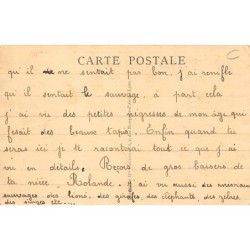 CARTE POSTALE
qu'il me sentait pas bon, j'ai reniflé
qu'il sentait le sauvage, à part, cela
j'ai vu des petites négresses de mon âge qui
fesait des beaux tapis. Enfin quand tu
seras ici je te racontrai tout ce que j'ai
vu en détails. Reçois de gros baisers de
ta nièce, Rolande. j'ai vu aussi des animaux
sauvages des lions, des girafes, des éléphants, des zèbres
des singes etc....